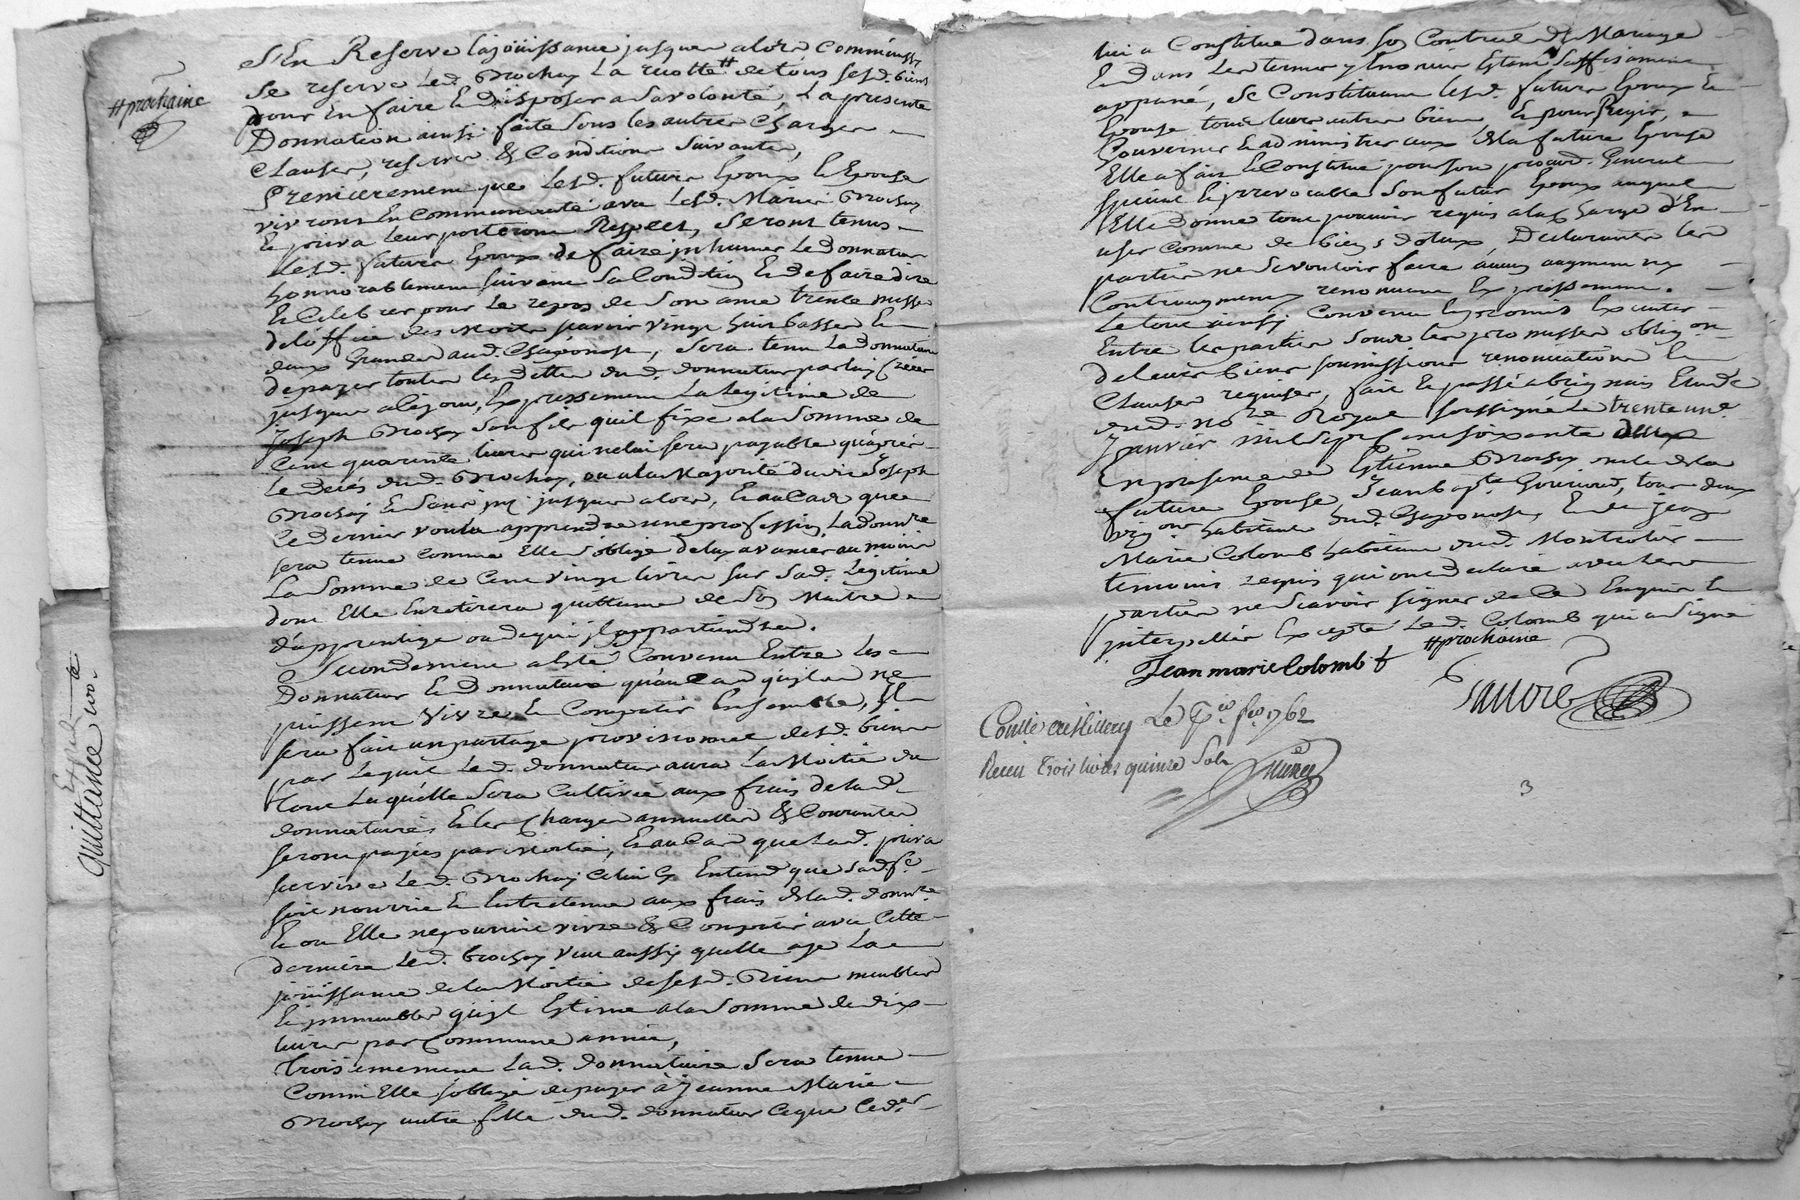 #prochaine
s'En Reserve la joüissance jusques alors Comm'aussy
se reserve led. Brochay La recolte# de tous sesd. biens
pour En faire Et disposer a sa volonté, La presente
Donnation ainsi faite sous les autres Charges
Clauses, reserves & Conditions suivantes,
Premierement que lesd. futurs Epoux Et Epouse
vivront En Communauté avec lesd. Mariés Brochay
Et Leur porteront Respect, seront tenus
lesd. futurs Epoux de faire jnhumer Le donnateur
honnorablement suivant sa Condition Et de faire dire
Et Celebrer pour Le repos de son ame trente messes
de l'office des Morts savoir vingt huit basses Et
deux Grandes aud. , sera tenu La donnataire
de payer toutes les dettes dud. donnateur par luy Créées
jusques a Ce jour, Expressement La Legitime de
Joseph Brochay son fils qu'il fixe a la somme de
Cent quarante livres qui ne lui sera payable qu'après
Le decés dud. Brochay, ou a la Majorité dudit Joseph
Brochay Et sans jusques alors, Et au Cas que
Ce dernier voulu apprendre une profession La donnre
sera tenue Comme Elle s'oblige de luy avancer au moins
La somme de Cent vingt livres sur sad. Legitime
dont Elle En retirera quittance de son Maitre
d'apprentige ou de qui jl appartiendra.
Secondement a Esté Convenu Entre les
Donnateur Et Donnataire qu'au Cas qu'jls ne
puissent Vivre Et Compatir Ensemble, jl
sera fait un partage provisionnel desd. biens
par Lequel Led. donnateur aura La Moitié du
tout Laquelle sera Cultivée aux frais de lad.
donnataire, Et les Charges annuelles & Courantes
seront payées par Moitié, Et au Cas que Lad.
survive Led. Brochay Celui Cy Entend que sad. fe
soit nourrie Et Entretenue aux frais de lad. donnre
Et ou Elle ne pourrait vivre & Compatir avec Cette
derniere Led. Brochay veut aussy quelle aye La
joüissance de la Moitié de sesd. Biens meubles
Et jmmeubles qu'jl Estime a la somme de dix
livres par Commune année,
Troisiemement Lad. donnataire sera tenue
Comm'Elle s'oblige de payer à Jeanne Marie
Brochay autre fille dud. donnateur Ce que Ced. er
Extrait
quittance
lui a Constitué dans son Contract de Mariage
Et dans les termes y Enoncés Estant suffisament
appané, Se Constituent lesd. futurs Epoux Et
Epouse tous leurs autres biens, Et pour Regir,
Gouverner Et administrer ceux de la future Epouse
Elle a fait Et Constitué pour son procurd. General
special Et irrevocable son futur Epoux auquel
Elle donne tout pouvoir requis a la Charge d'En
user Comme de biens dotaux, Declarants les
parties ne se vouloir faire aucun augment ny
Contraugment y renonçant Expressement.
Le tout ainsi Convenu Et promis Executer
Entre les parties sous les promesses obligons
de leurs biens soumissions renonciations Et
Clauses requises, fait Et passé a etude
dud. nore Royal soussigné Le trente une
Janvier mil sept Cent soixante deux
En presence de Etienne Brochay oncle de la
future Epouse, Jean bapte , tous deux
vignons habitans dud. , Et de jean
Marie Colomb habitant dud. Montrotier
temoins requis qui ont declaré avec les
parties ne sçavoir signer de Ce Enquis Et
jnterpellés Excepté Led. Colomb qui a signé
#prochaine
Jean marie Colomb
Le fer. 1762
Receu Trois livres quinze sols
3